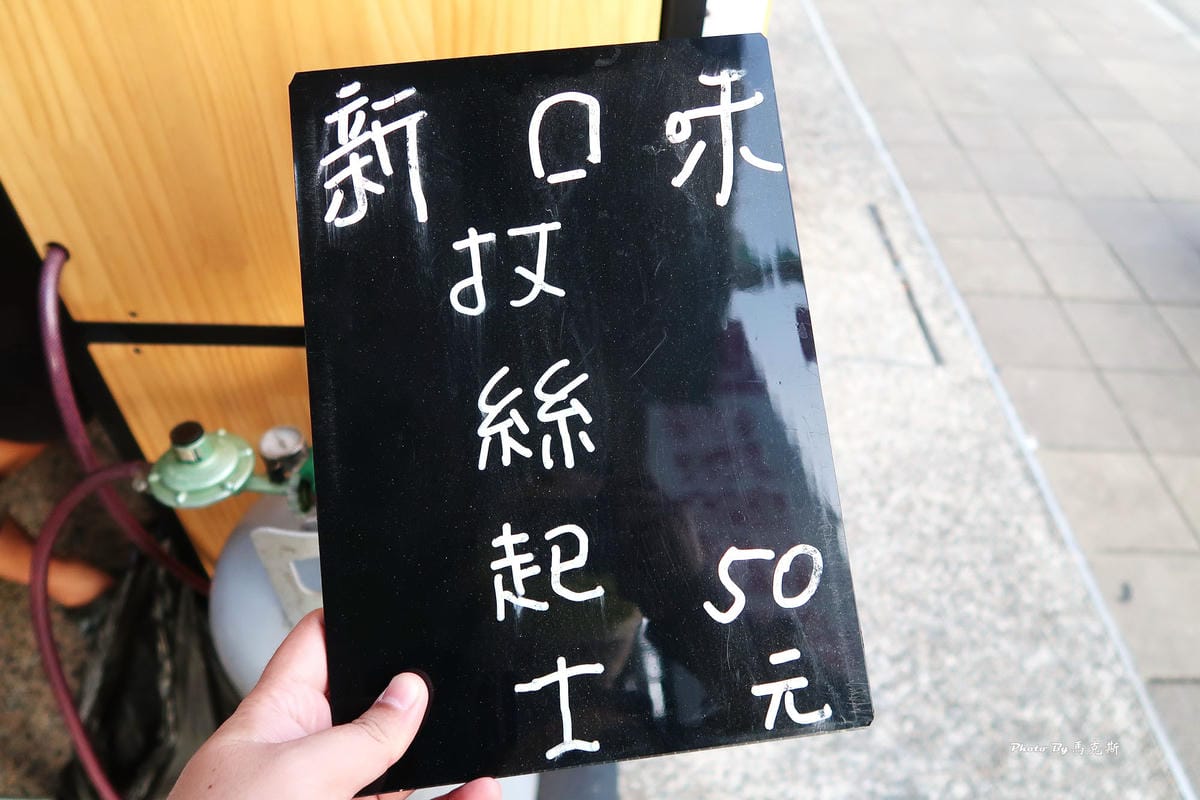 新口味
扙絲起士
50元
Photo By 馬克斯